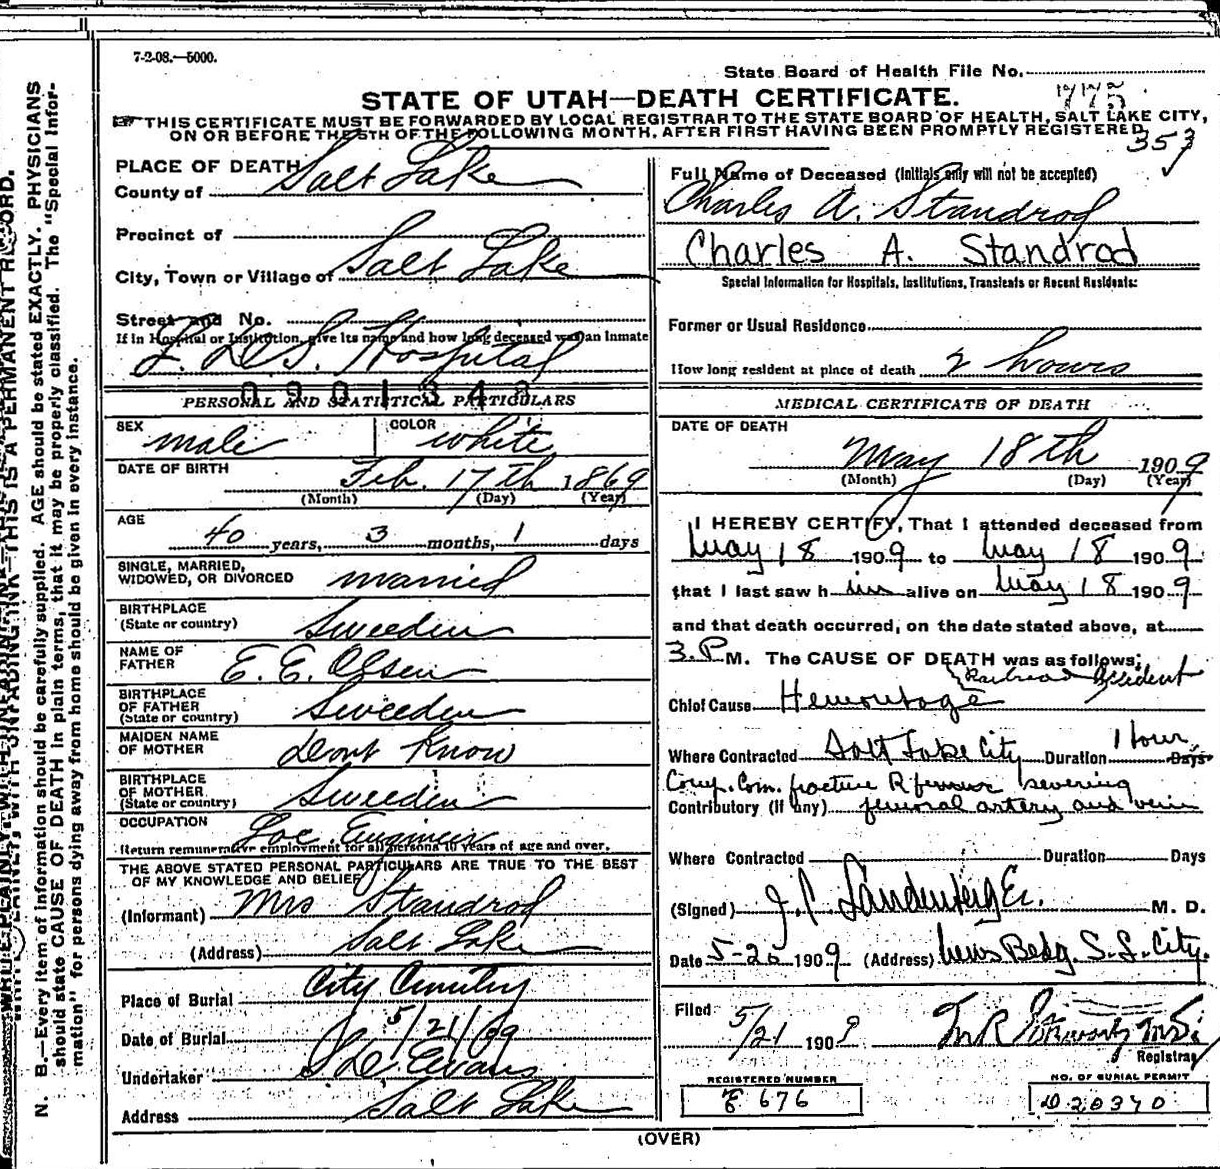 7-2-08.—5000.
State Board of Health File No.
STATE OF UTAH—DEATH CERTIFICATE.
775
THIS CERTIFICATE MUST BE FORWARDED BY LOCAL REGISTRAR TO THE STATE BOARD OF HEALTH, SALT LAKE CITY,
ON OR BEFORE THE 5TH OF THE FOLLOWING MONTH, AFTER FIRST HAVING BEEN PROMPTLY REGISTERED
353
PLACE OF DEATH
County of Salt Lake
Precinct of
City, Town or Village of Salt Lake
Street and No.
If in Hospital or Institution, give its name and how long deceased was an Inmate
L. D. S. Hospital
0901343
PERSONAL AND STATISTICAL PARTICULARS
SEX male COLOR white
DATE OF BIRTH Feb. 17th 1869
(Month) (Day) (Year)
AGE
40 years, 3 months, 1 days
SINGLE, MARRIED,
WIDOWED, OR DIVORCED married
BIRTHPLACE
(State or country) Sweeden
NAME OF
FATHER E. E. Olsen
BIRTHPLACE
OF FATHER
(State or country) Sweeden
MAIDEN NAME
OF MOTHER dont Know
BIRTHPLACE
OF MOTHER
(State or country) Sweeden
OCCUPATION Loc. Engineer
Return remunerative employment for all persons 10 years of age and over.
THE ABOVE STATED PERSONAL PARTICULARS ARE TRUE TO THE BEST
OF MY KNOWLEDGE AND BELIEF
(Informant) Mrs Standrod
(Address) Salt Lake
Place of Burial City Cemetery
Date of Burial 5/21/09
Undertaker Evans
Address Salt Lake
Full Name of Deceased (Initials only will not be accepted)
Charles A. Standrod
Charles A. Standrod
Special Information for Hospitals, Institutions, Transients or Recent Residents:
Former or Usual Residence
How long resident at place of death 2 hours
MEDICAL CERTIFICATE OF DEATH
DATE OF DEATH
May 18th 1909
(Month) (Day) (Year)
I HEREBY CERTIFY, That I attended deceased from
May 18 1909 to May 18 1909
that I last saw him alive on May 18 1909
and that death occurred, on the date stated above, at
3. P M. The CAUSE OF DEATH was as follows:
Railroad Accident
Chief Cause Hemorrhage
Where Contracted Salt Lake City Duration 1 Hour Days
Comp. Com. fracture R femur severing
Contributory (if any) femoral artery and vein
Where Contracted Duration Days
(Signed) M. D.
Date 5-20 1909 (Address) News Bldg. S. L. City.
Filed 5/21 1909
Registrar
REGISTERED NUMBER
8 676
NO. OF BURIAL PERMIT
D 20370
(OVER)
N. B.—Every item of information should be carefully supplied. AGE should be stated EXACTLY. PHYSICIANS
should state CAUSE OF DEATH in plain terms, that it may be properly classified. The "Special Infor-
mation" for persons dying away from home should be given in every instance.
WRITE PLAINLY, WITH UNFADING INK—THIS IS A PERMANENT RECORD.